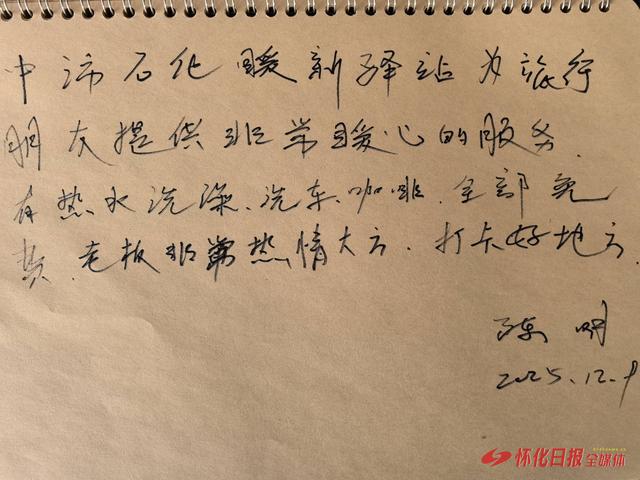 中沛石化暖新驿站为旅行
朋友提供非常暖心的服务.
有热水洗澡、洗车、咖啡.全部免
费.老板非常热情大方.打卡好地方.
陈明
2025.12.9
怀化日报全媒体